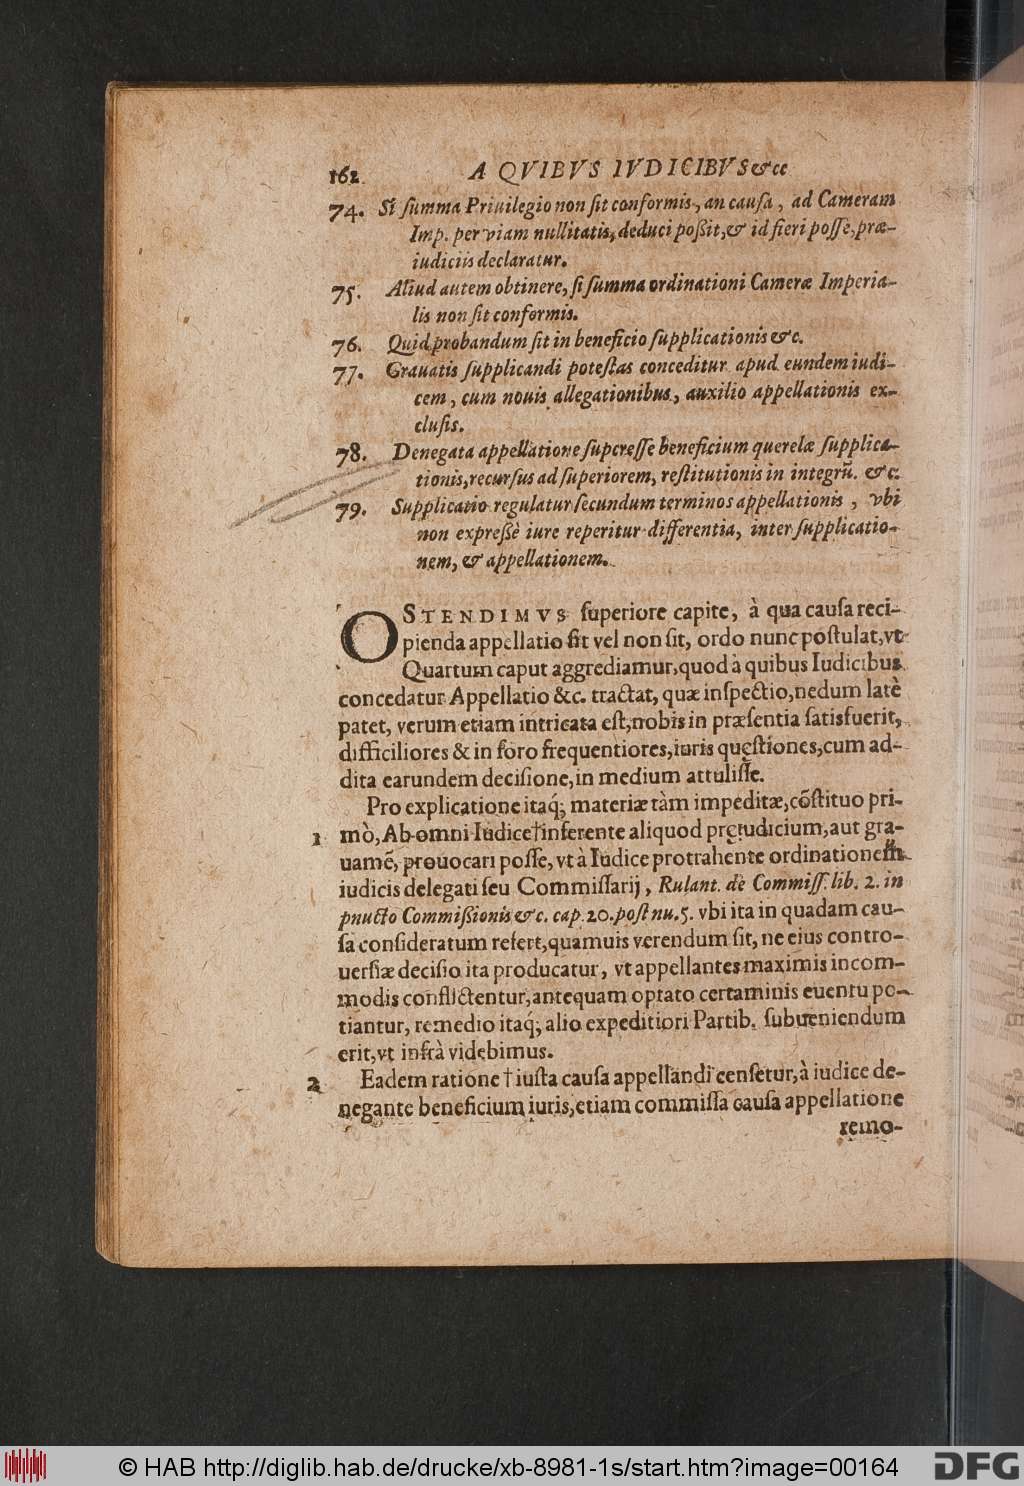 162 A QVIBVS IVDICIBVS &cc
74. Si ſumma Priuilegio non ſit conformis, an cauſa, ad Cameram
Imp. per viam nullitatis, deduci poßit, & id fieri poſſe, præ-
iudiciis declaratur.
75. Aliud autem obtinere, ſi ſumma ordinationi Cameræ Imperia-
lis non ſit conformis.
76. Quid probandum ſit in beneficio ſupplicationis &c.
77. Grauatis ſupplicandi poteſtas conceditur apud eundem iudi-
cem, cum nouis allegationibus, auxilio appellationis ex-
cluſis.
78. Denegata appellatione ſupereſſe beneficium querelæ ſupplica-
tionis, recurſus ad ſuperiorem, reſtitutionis in integrũ. &c.
79. Supplicatio regulatur ſecundum terminos appellationis, vbi
non expreßè iure reperitur differentia, inter ſupplicatio-
nem, & appellationem.
OSTENDIMVS ſuperiore capite, à qua cauſa reci-
pienda appellatio ſit vel non ſit, ordo nunc poſtulat, vt
Quartum caput aggrediamur, quod à quibus Iudicibus
concedatur Appellatio &c. tractat, quæ inſpectio, nedum latè
patet, verum etiam intricata eſt, nobis in præſentia ſatisfuerit,
difficiliores & in foro frequentiores, iuris quęſtiones, cum ad-
dita earundem deciſione, in medium attuliſſe.
Pro explicatione itaq́; materiæ tàm impeditæ, cõſtituo pri-
1 mò, Ab omni Iudice † inferente aliquod pręiudicium, aut gra-
uamẽ, prouocari poſſe, vt à Iudice protrahente ordinationem
iudicis delegati ſeu Commiſſarij, Rulant. de Commiſſ. lib. 2. in
pnucto Commißionis &c. cap. 20. poſt nu. 5. vbi ita in quadam cau-
ſa conſideratum refert, quamuis verendum ſit, ne eius contro-
uerſiæ deciſio ita producatur, vt appellantes maximis incom-
modis conflictentur, antequam optato certaminis euentu po-
tiantur, remedio itaq́; alio expeditiori Partib. ſubueniendum
erit, vt infrà videbimus.
2 Eadem ratione † iuſta cauſa appellandi cenſetur, à iudice de-
negante beneficium iuris, etiam commiſſa cauſa appellatione
remo-
© HAB http://diglib.hab.de/drucke/xb-8981-1s/start.htm?image=00164 DFG